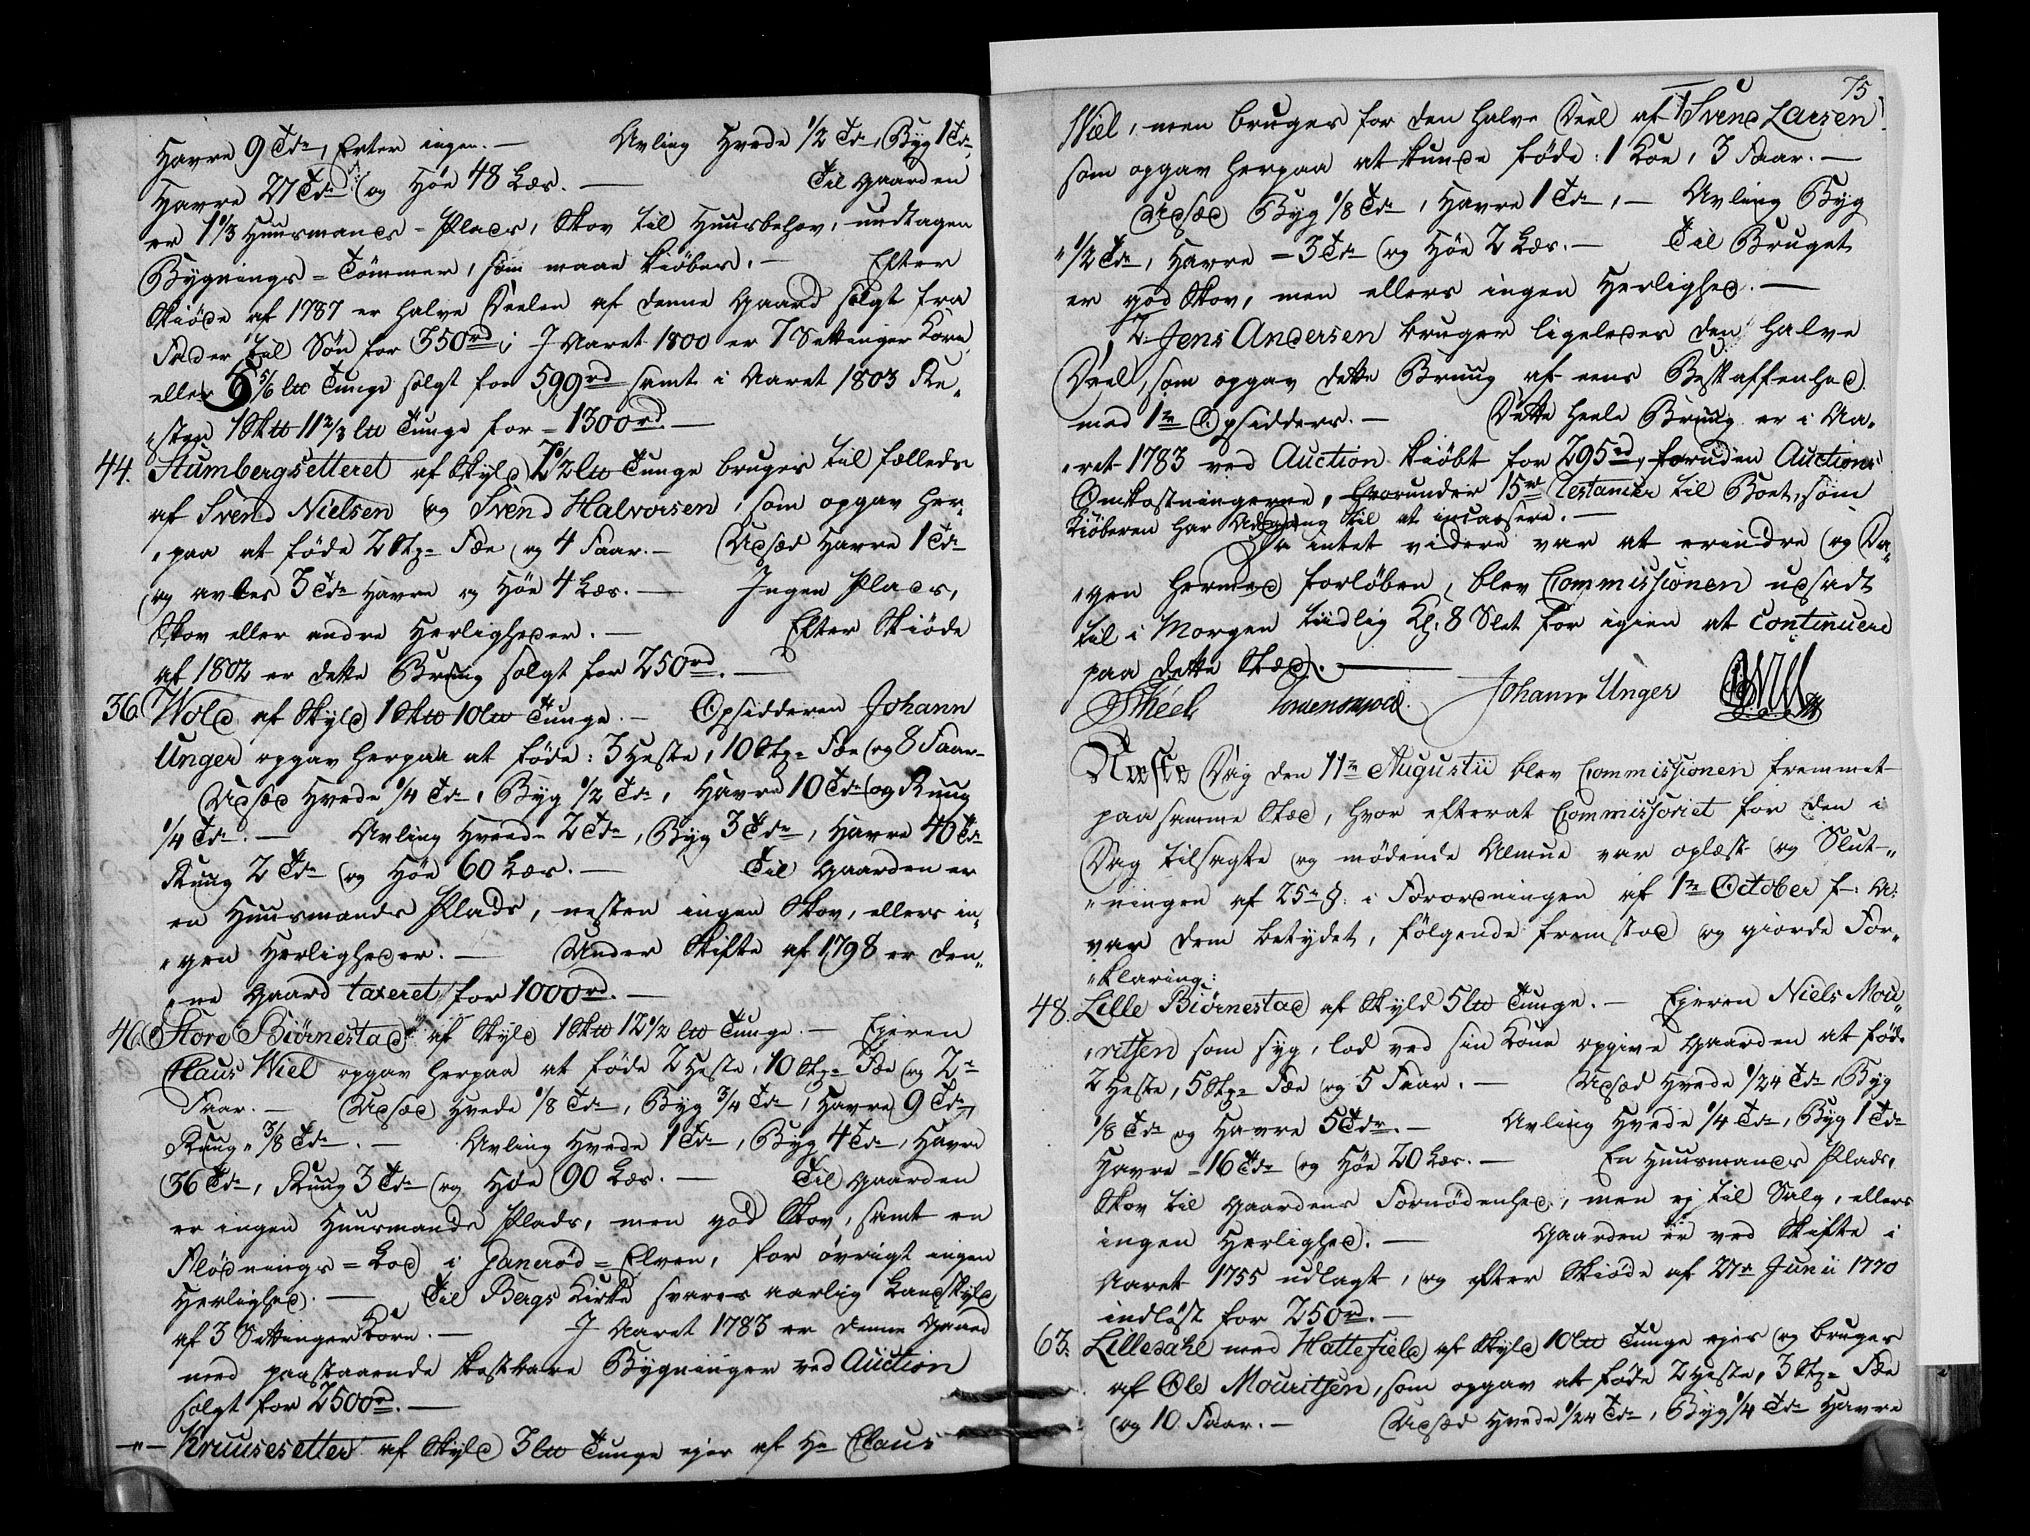 Havre 9 Tdr, Erter ingen. — Avling Hvede 1/2 Td, Byg 1 Td,
Havre 27 Tdr og Høe 48 Læs. — Til Gaarden
er 1 1/3 Huusmands-Plads, Skov til Huusbehov, undtagen
Bygnings-Tømmer, som maae kiøbes. — Efter
Skiøde af 1787 er halve Deelen af denne Gaard solgt fra
Fader til Søn for 350rd; I Aaret 1800 er 7 Settinger Korn
eller 5/6 lb Tunge solgt for 599rd samt i Aaret 1803 Re-
„sten 1 Skb 11 2/3 lb Tunge for - 1300rd. —
44. Stumbergsetteret af Skyld 1/2 lb Tunge bruges til fælleds
af Svend Nielsen og Svend Halvorsen, som opgav her-
„paa at føde 2 Stp= Fæe og 4 Faar. — Udsæd Havre 1 Td
og avles 3 Tdr Havre og Høe 4 Læs. — Ingen Plads,
Skov eller andre Herligheder. — Efter Skiøde
af 1802 er dette Bruug solgt for 250rd. —
36. Wold af Skyld 1 Skb 10 lb Tunge. — Opsidderen Johann
Unger opgav herpaa at føde: 3 Heste, 10 Stp= Fæe og 8 Faar —
Udsæd Hvede 1/4 Td, Byg 1/2 Td, Havre 10 Tdr og Ruug
1/4 Td. — Avling Hvede 2 Tdr, Byg 3 Tdr, Havre 40 Tdr
Ruug 2 Tdr og Høe 60 Læs. — Til Gaarden er
en Huusmands Plads, nesten ingen Skov, ellers in-
„gen Herligheder. — Under Skifte af 1798 er den-
„ne Gaard taxeret for 1000rd. —
46. Store Biørnestad af Skyld 1 Skb 12 1/2 lb Tunge. — Ejeren
Claus Wiel opgav herpaa at føde 2 Heste, 10 Stp= Fæe og 2
Faar. — Udsæd Hvede 1/8 Td, Byg 3/4 Td, Havre 9 Tdr,
Ruug 3/8 Td. — Avling Hvede 1 Td, Byg 4 Tdr, Havre
36 Tdr, Ruug 3 Tdr og Høe 90 Læs. — Til Gaarden
er ingen Huusmands Plads, men god Skov, samt en
Flødnings-Lod i Janerød-Elven, for øvrigt ingen
Herlighed. — Til Bergs Kirke svares aarlig Landskyld
af 3 Settinger Korn. — I Aaret 1783 er denne Gaard
med paastaaende kostbare Bygninger ved Auction
solgt for 2500rd. —
—„— Kruusesetter af Skyld 3 lb Tunge ejes af Hr Claus
75
Wiel, men bruges for den halve Deel af 1 Svend Larsen
som opgav herpaa at kunde føde: 1 Koe, 3 Faar. —
Udsæd Byg 1/8 Td, Havre 1 Td, — Avling Byg
„1/2 Td, Havre - 3 Tdr og Høe 2 Læs. — Til Bruget
er god Skov, men ellers ingen Herlighed. —
2. Jens Andersen bruger ligeledes den halve
Deel, som opgav dette Bruug af eens Beskaffenhed
med 1te Opsidders. — Dette heele Bruug er i Aa-
„ret 1783 ved Auction kiøbt for 295rd, foruden Auctions
Omkostningerne, hvorunder 15rd Restancer til Boet, som
Kiøberen har Adgang til at incassere. —
Da intet videre var at erindre og Da-
„gen hermed forløben, blev Commissionen udsadt
til i Morgen tiidlig Kl. 8 Slet for igien at continuere
paa dette Stæd. —
Skeel Johann Unger
Næste Dag den 11te Augustii blev Commissionen fremmet
paa samme Stæd, hvor efterat Commissoriet for den i
Dag tilsagte og mødende Almue var oplæst og Slut-
„ningen af 25de §. i Forordningen af 1te October f: A:
var dem betydet, følgende fremstod og giorde For-
„klaring:
48. Lille Biørnestad af Skyld 5 lb Tunge. — Ejeren Niels Mou-
„ritsen som syg, lod ved sin Kone opgive Gaarden at føde
2 Heste, 5 Stp= Fæe og 5 Faar. — Udsæd Hvede 1/24 Td, Byg
1/8 Td og Havre 5 Tdr. — Avling Hvede 1/4 Td, Byg 1 Td
Havre - 16 Tdr og Høe 20 Læs. — En Huusmands Plads,
Skov til Gaardens Fornødenhed, men ej til Salg, ellers
ingen Herlighed. — Gaarden er ved Skifte i
Aaret 1755 udlagt, og efter Skiøde af 27de Junii 1770
indløst for 250rd. —
63. Lilledahl med Hattefield af Skyld 10 lb Tunge ejes og bruges
af Ole Mouritsen, som opgav at føde 2 Heste, 3 Stp= Fæe
og 10 Faar. — Udsæd Hvede 1/24 Td, Byg 1/4 Td Havre